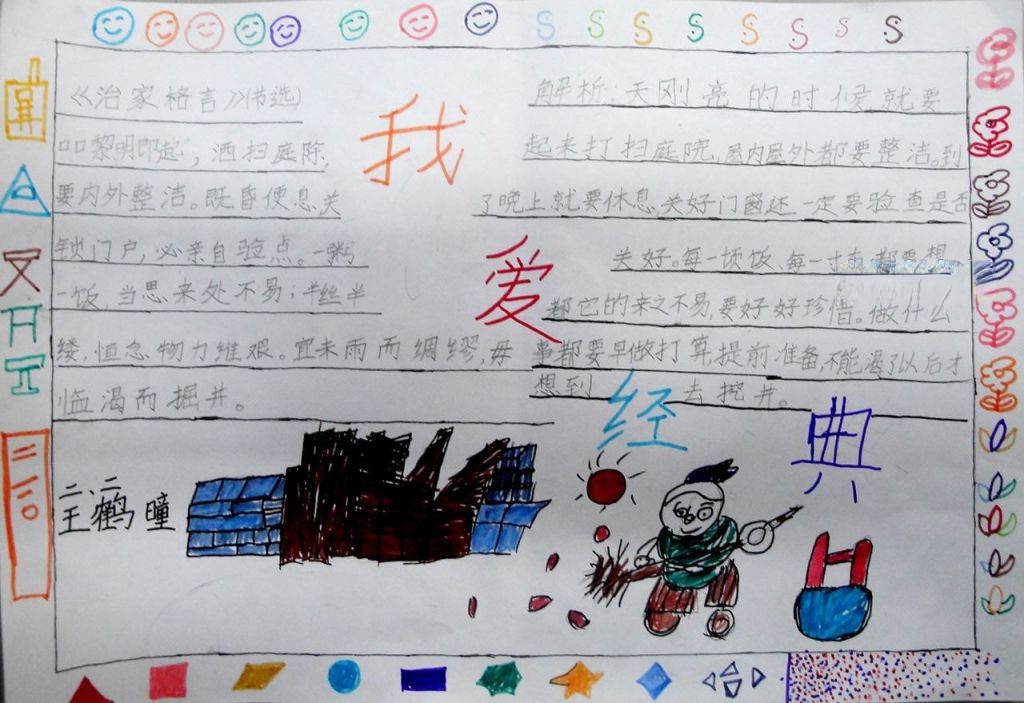 《治家格言》(节选)
黎明即起，洒扫庭除，
要内外整洁。既昏便息，关
锁门户，必亲自验点。一粥
一饭，当思来处不易；半丝半
缕，恒念物力维艰。宜未雨而绸缪，毋
临渴而掘井。
我
爱
经
典
解析：天刚亮的时候就要
起来打扫庭院，屋内屋外都要整洁。到
了晚上就要休息，关好门窗还一定要验查是否
关好。每一顿饭、每一寸布，都要想
都它的来之不易，要好好珍惜。做什么
事都要早做打算，提前准备，不能渴了以后才
想到 去挖井。
二、二
王鹤曈